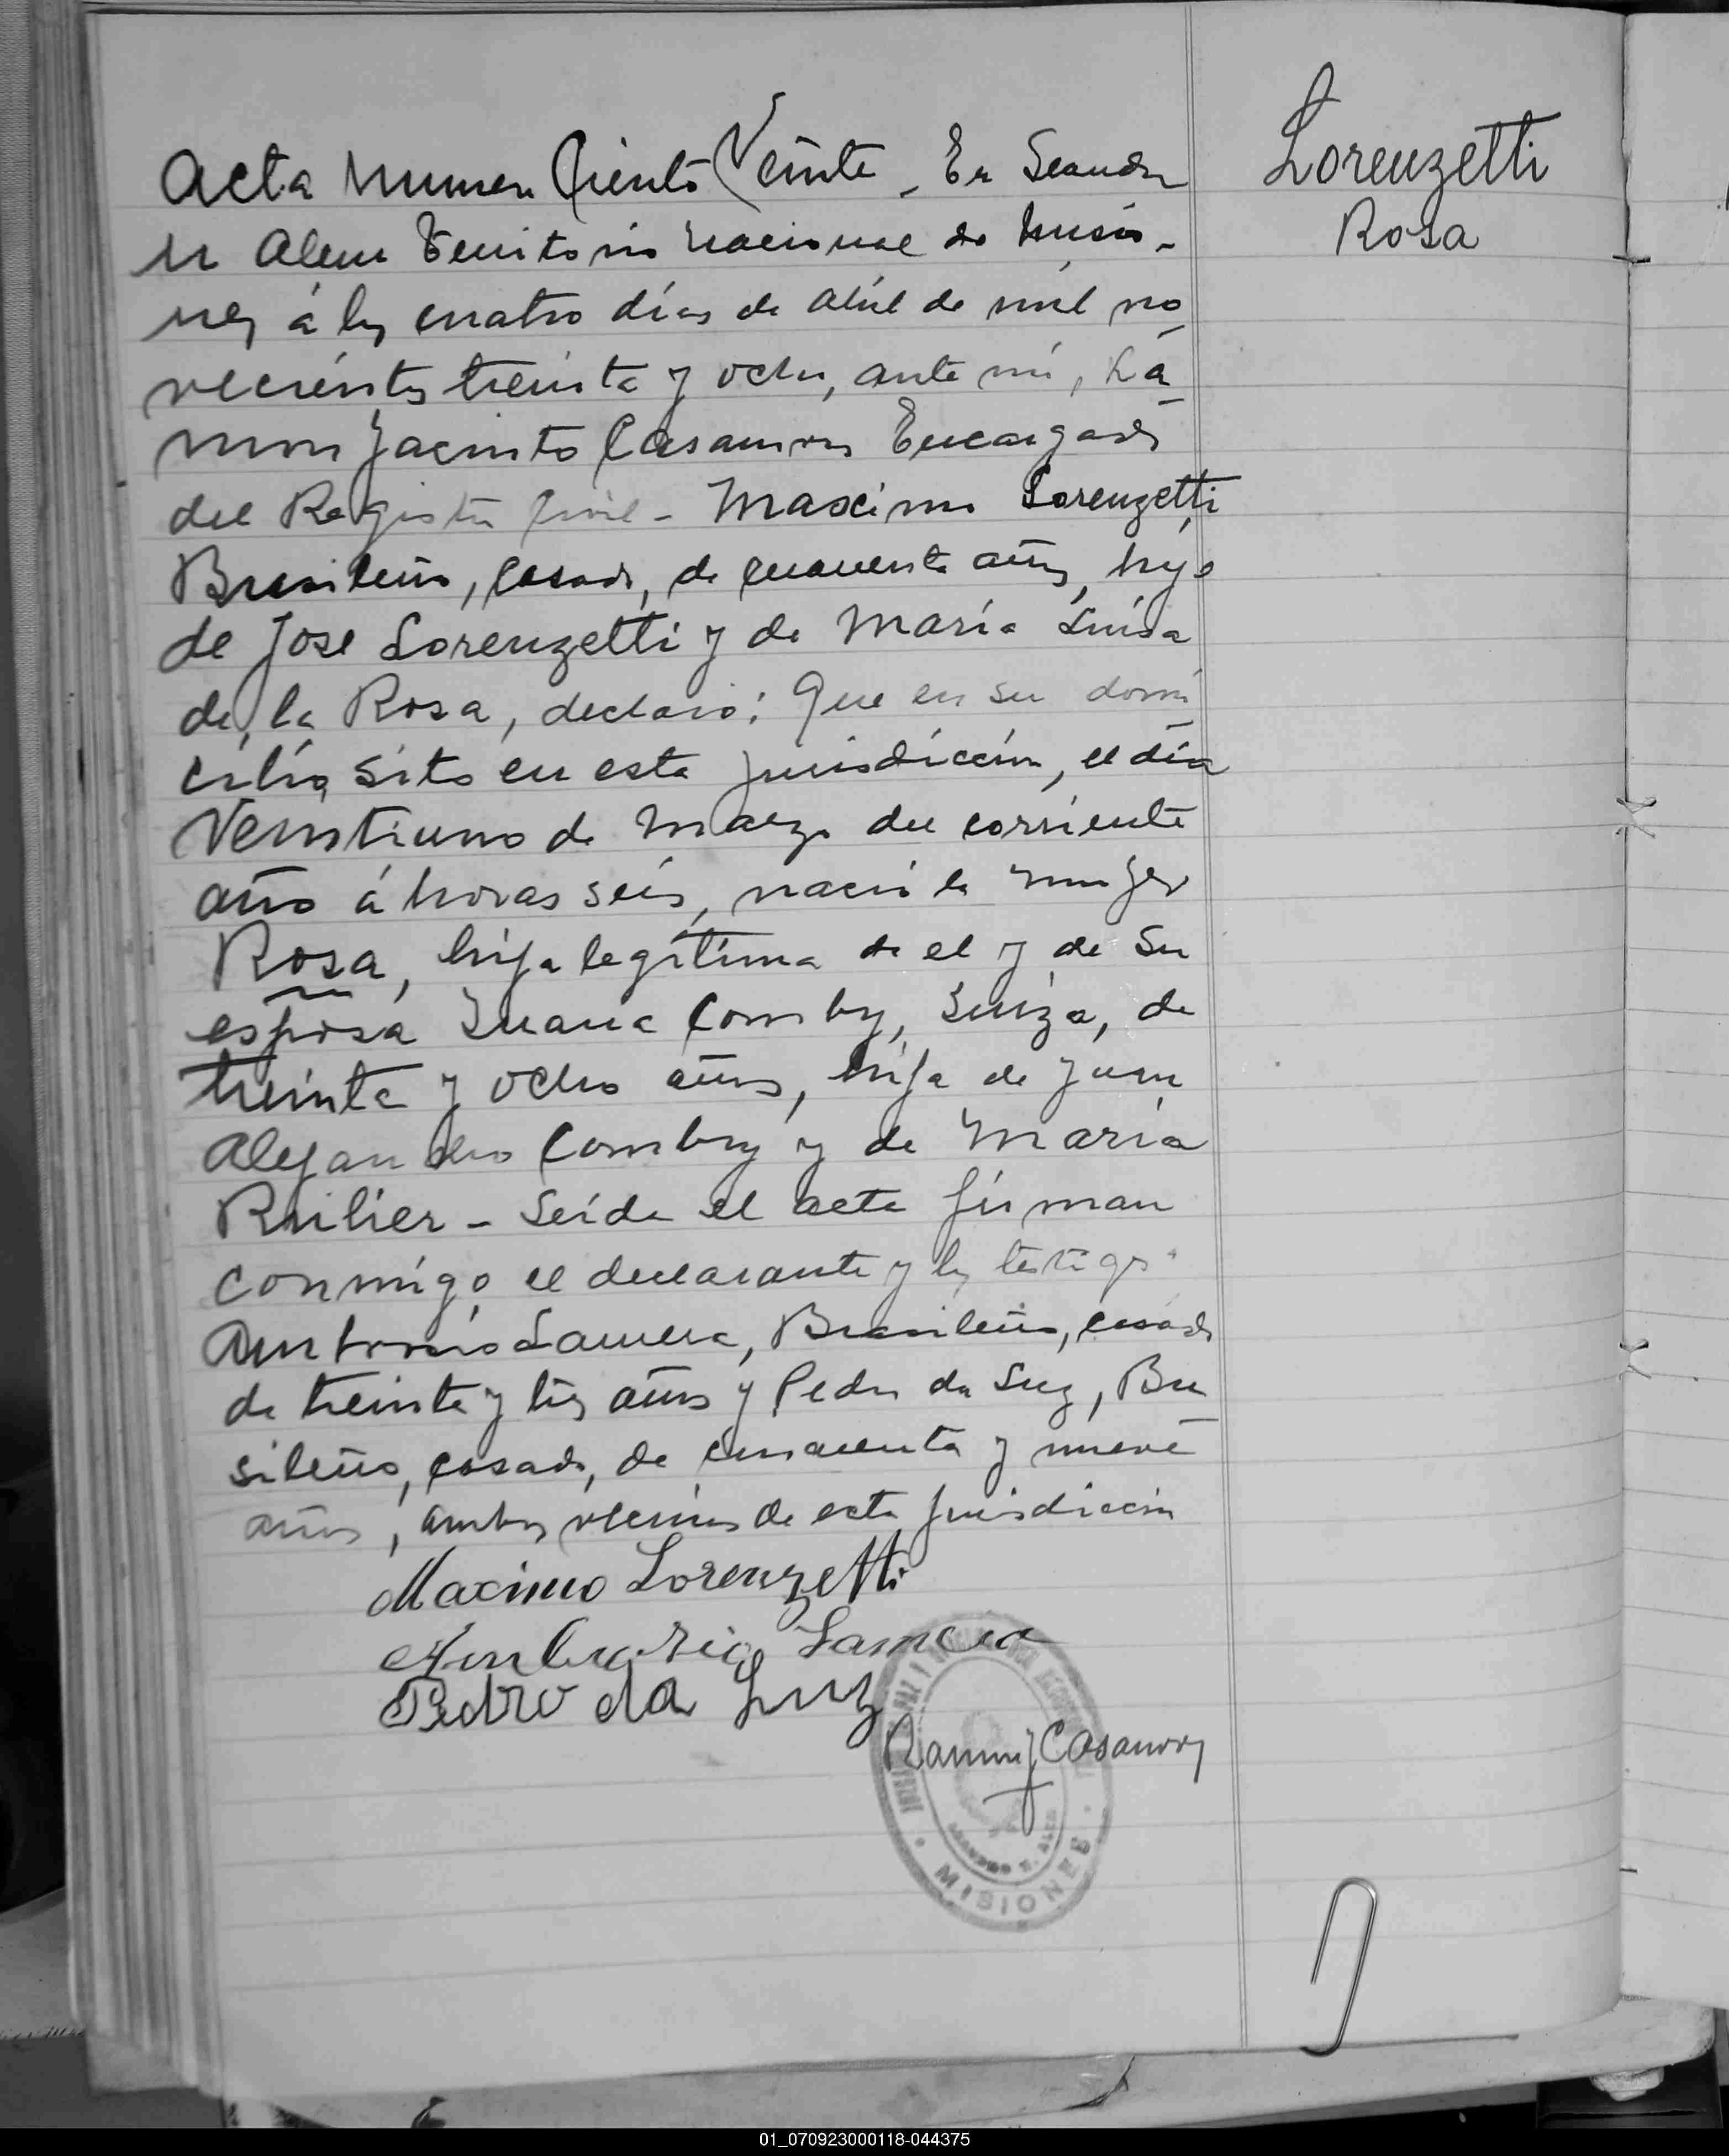 Acta Numero Ciento Veinte - En Leandro
N Alem Territorio Nacional de Misio-
nes á los cuatro días de Abril de mil no
vecientos treinta y ocho, ante mí, Ra
mon Jacinto Casanova Encargado
del Registro Civil - Maximo Lorenzetti
Brasileño, casado, de cuarenta años, hijo
de Jose Lorenzetti y de María Luisa
de la Rosa, declaró: Que en su domi
cilio, sito en esta jurisdicción, el día
Veintiuno de Marzo del corriente
año á horas seis, nació la mujer
Rosa, hija legítima de el y de su
esposa Juana Comby, Suiza, de
treinta y ocho años, hija de Juan
Alejandro Comby y de María
Rulier - Leída el acta firman
conmigo el declarante y los testigos
Ambrosio Lamera, Brasileño, casado
de treinta y tres años y Pedro da Luz, Bra
sileño, casado, de cuarenta y nueve
años, ambos vecinos de esta jurisdicción
Maximo Lorenzetti
Ambrosio Lamera
Pedro da Luz
Ramon J Casanova
MISIONES
Lorenzetti
Rosa
01_070923000118-044375